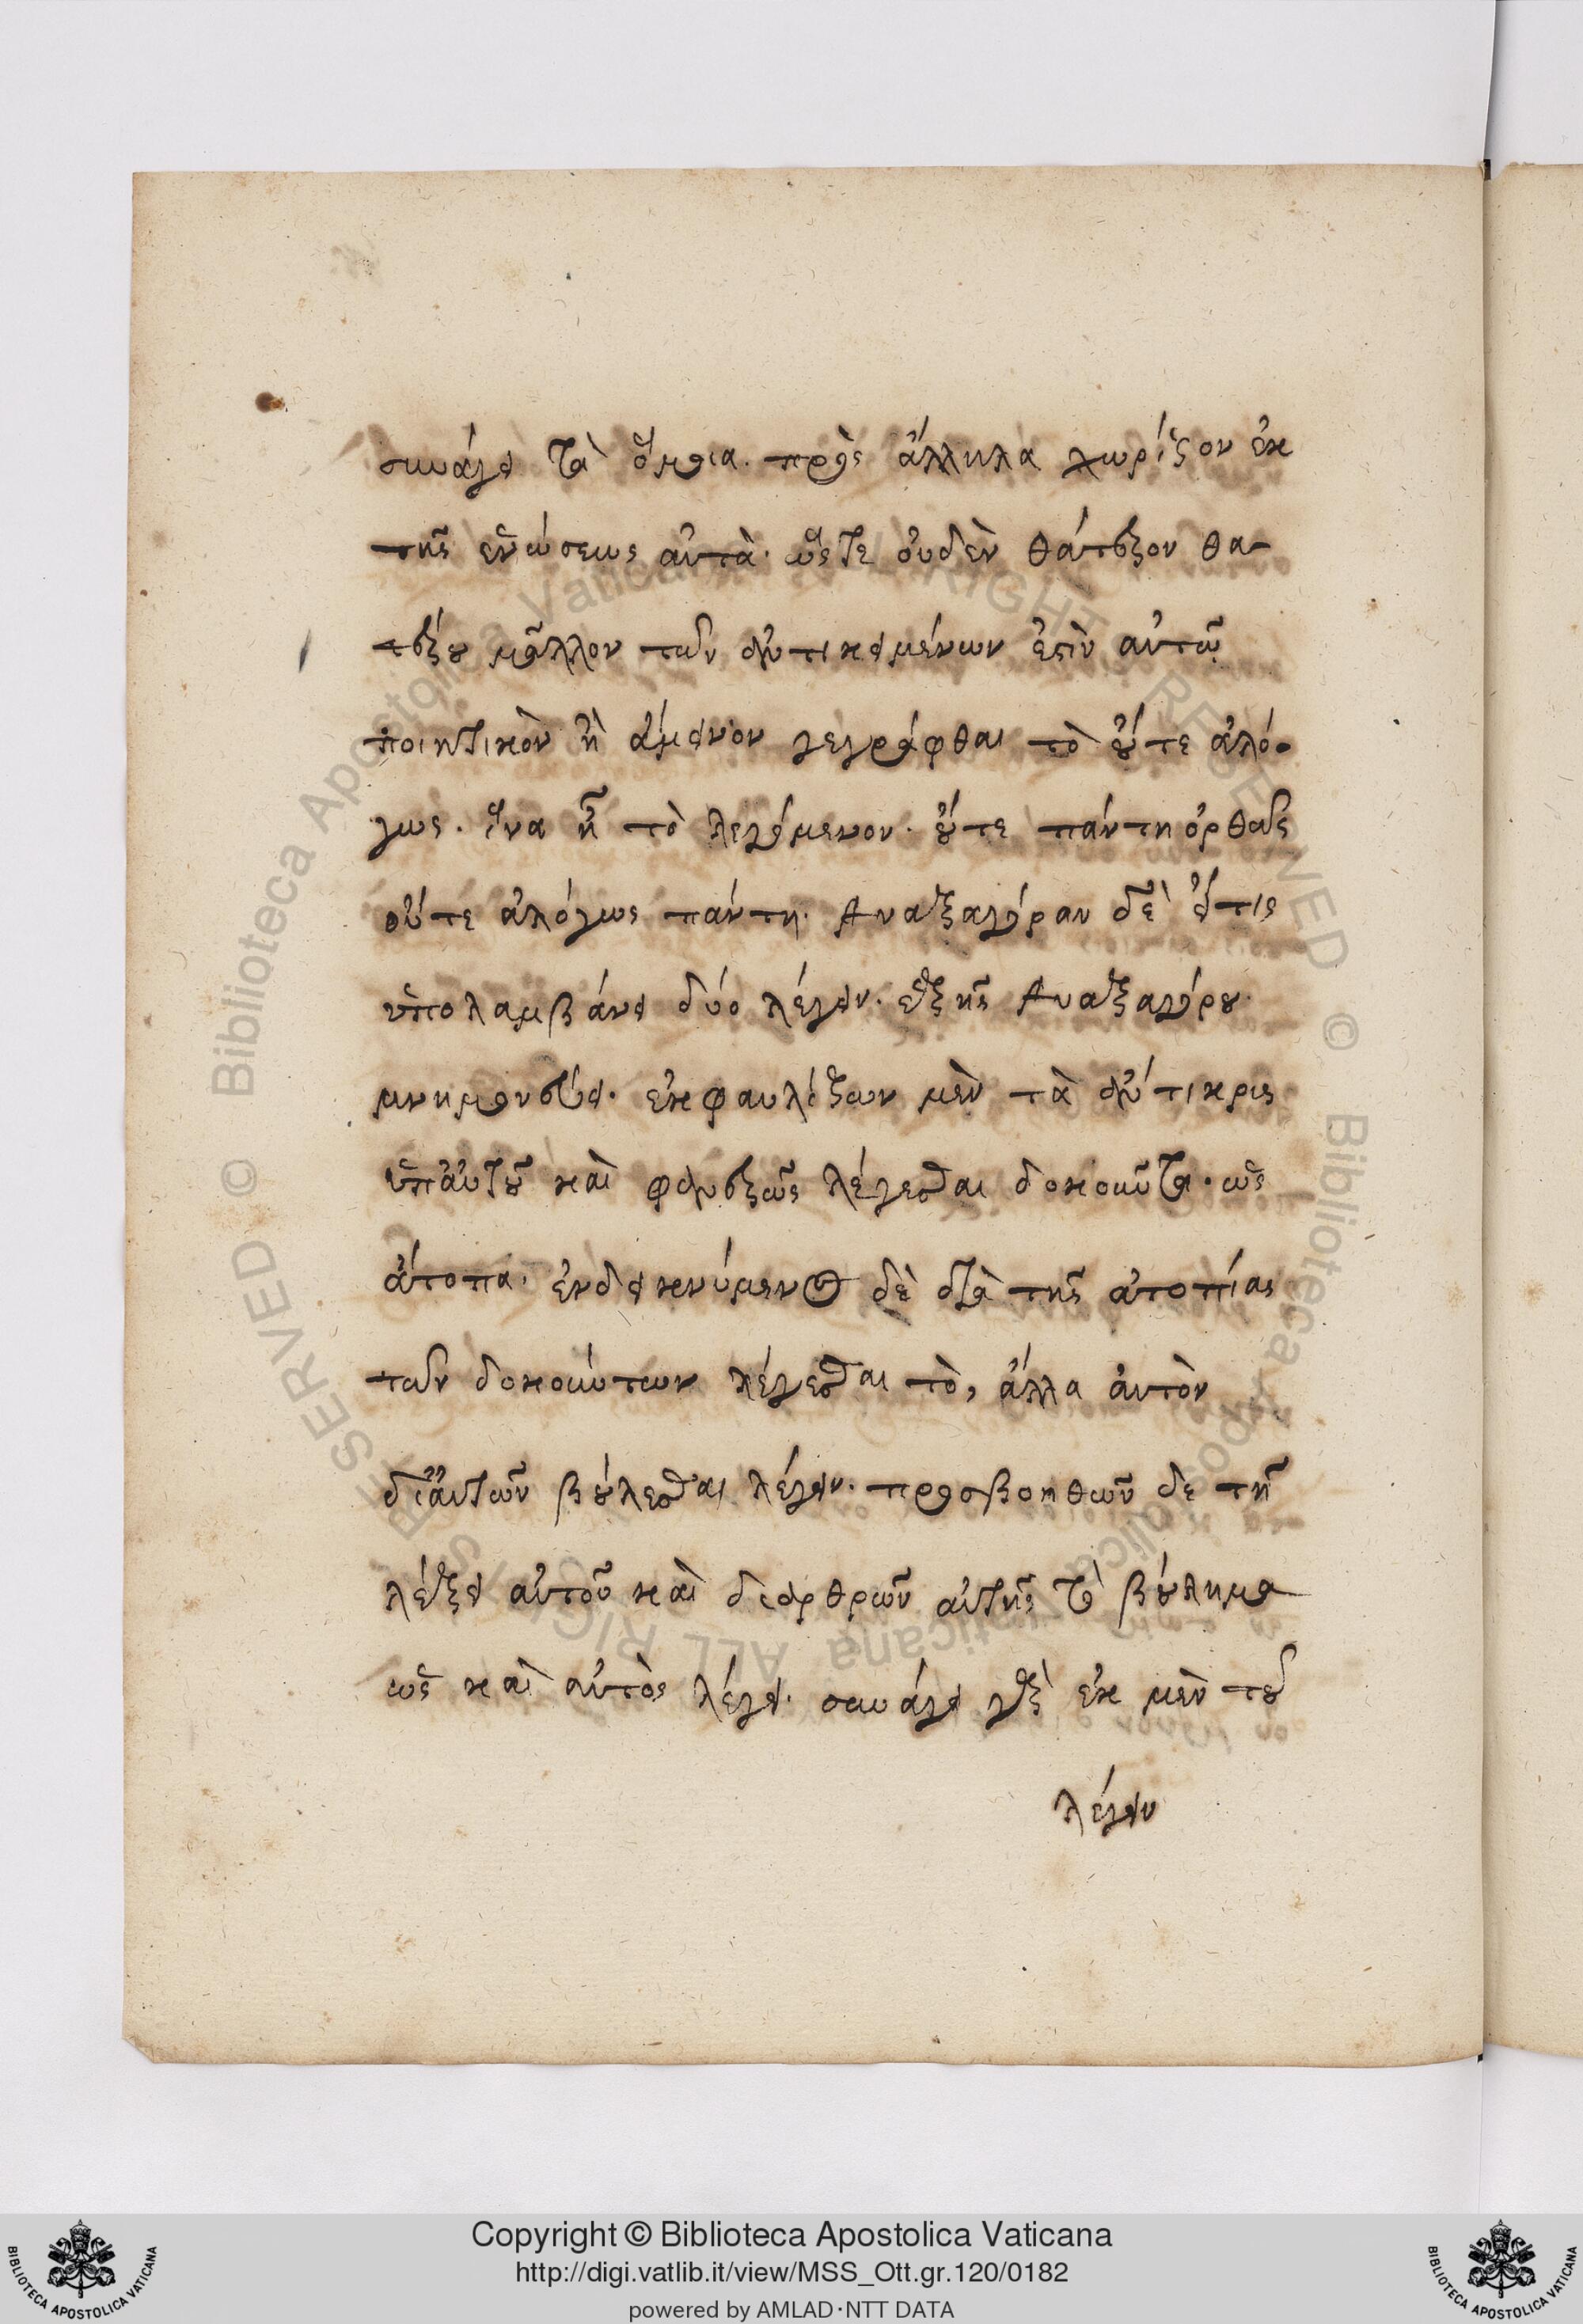 συνάγει τὰ ὅμοια. πρὸς ἄλληλα χωρίζον ἐκ
τῆς ἑνώσεως αὐτὰ. ὥστε οὐδὲν θάτερον θα-
τέρου μᾶλλον τῶν ἀντικειμένων ἐστὶν αὐτῷ
ποιητικὸν ἢ ἄμεινον γεγράφθαι τὸ οὔτε ἀλό-
γως. ἵνα ᾖ τὸ λεγόμενον. οὔτε πάντη ὀρθῶς
οὔτε ἀλόγως πάντη. Αναξαγόραν δὲ ὅτις
ὑπολαμβάνει δύο λέγειν. ἑξῆς Αναξαγόρου
μνημονεύει. ἐκφαυλίζων μὲν τὰ ἀντικρις
ὑπ' αὐτοῦ καὶ φανερῶς λέγεσθαι δοκοῦντα. ὡς
ἄτοπα. ἐνδεικνύμενος δὲ διὰ τῆς ἀτοπίας
τῶν δοκούντων λέγεσθαι τὸ, ἄλλα αὐτὸν
δι' αὐτῶν βούλεσθαι λέγειν. προσβοηθῶν δε τῇ
λέξει αὐτοῦ καὶ διαρθρῶν αὐτῆς τὸ βούλημα
ὡς καὶ αὐτὸς λέγει. συνάγει γὰρ ἐκ μὲν τοῦ
λέγειν
Copyright © Biblioteca Apostolica Vaticana
http://digi.vatlib.it/view/MSS_Ott.gr.120/0182
powered by AMLAD·NTT DATA